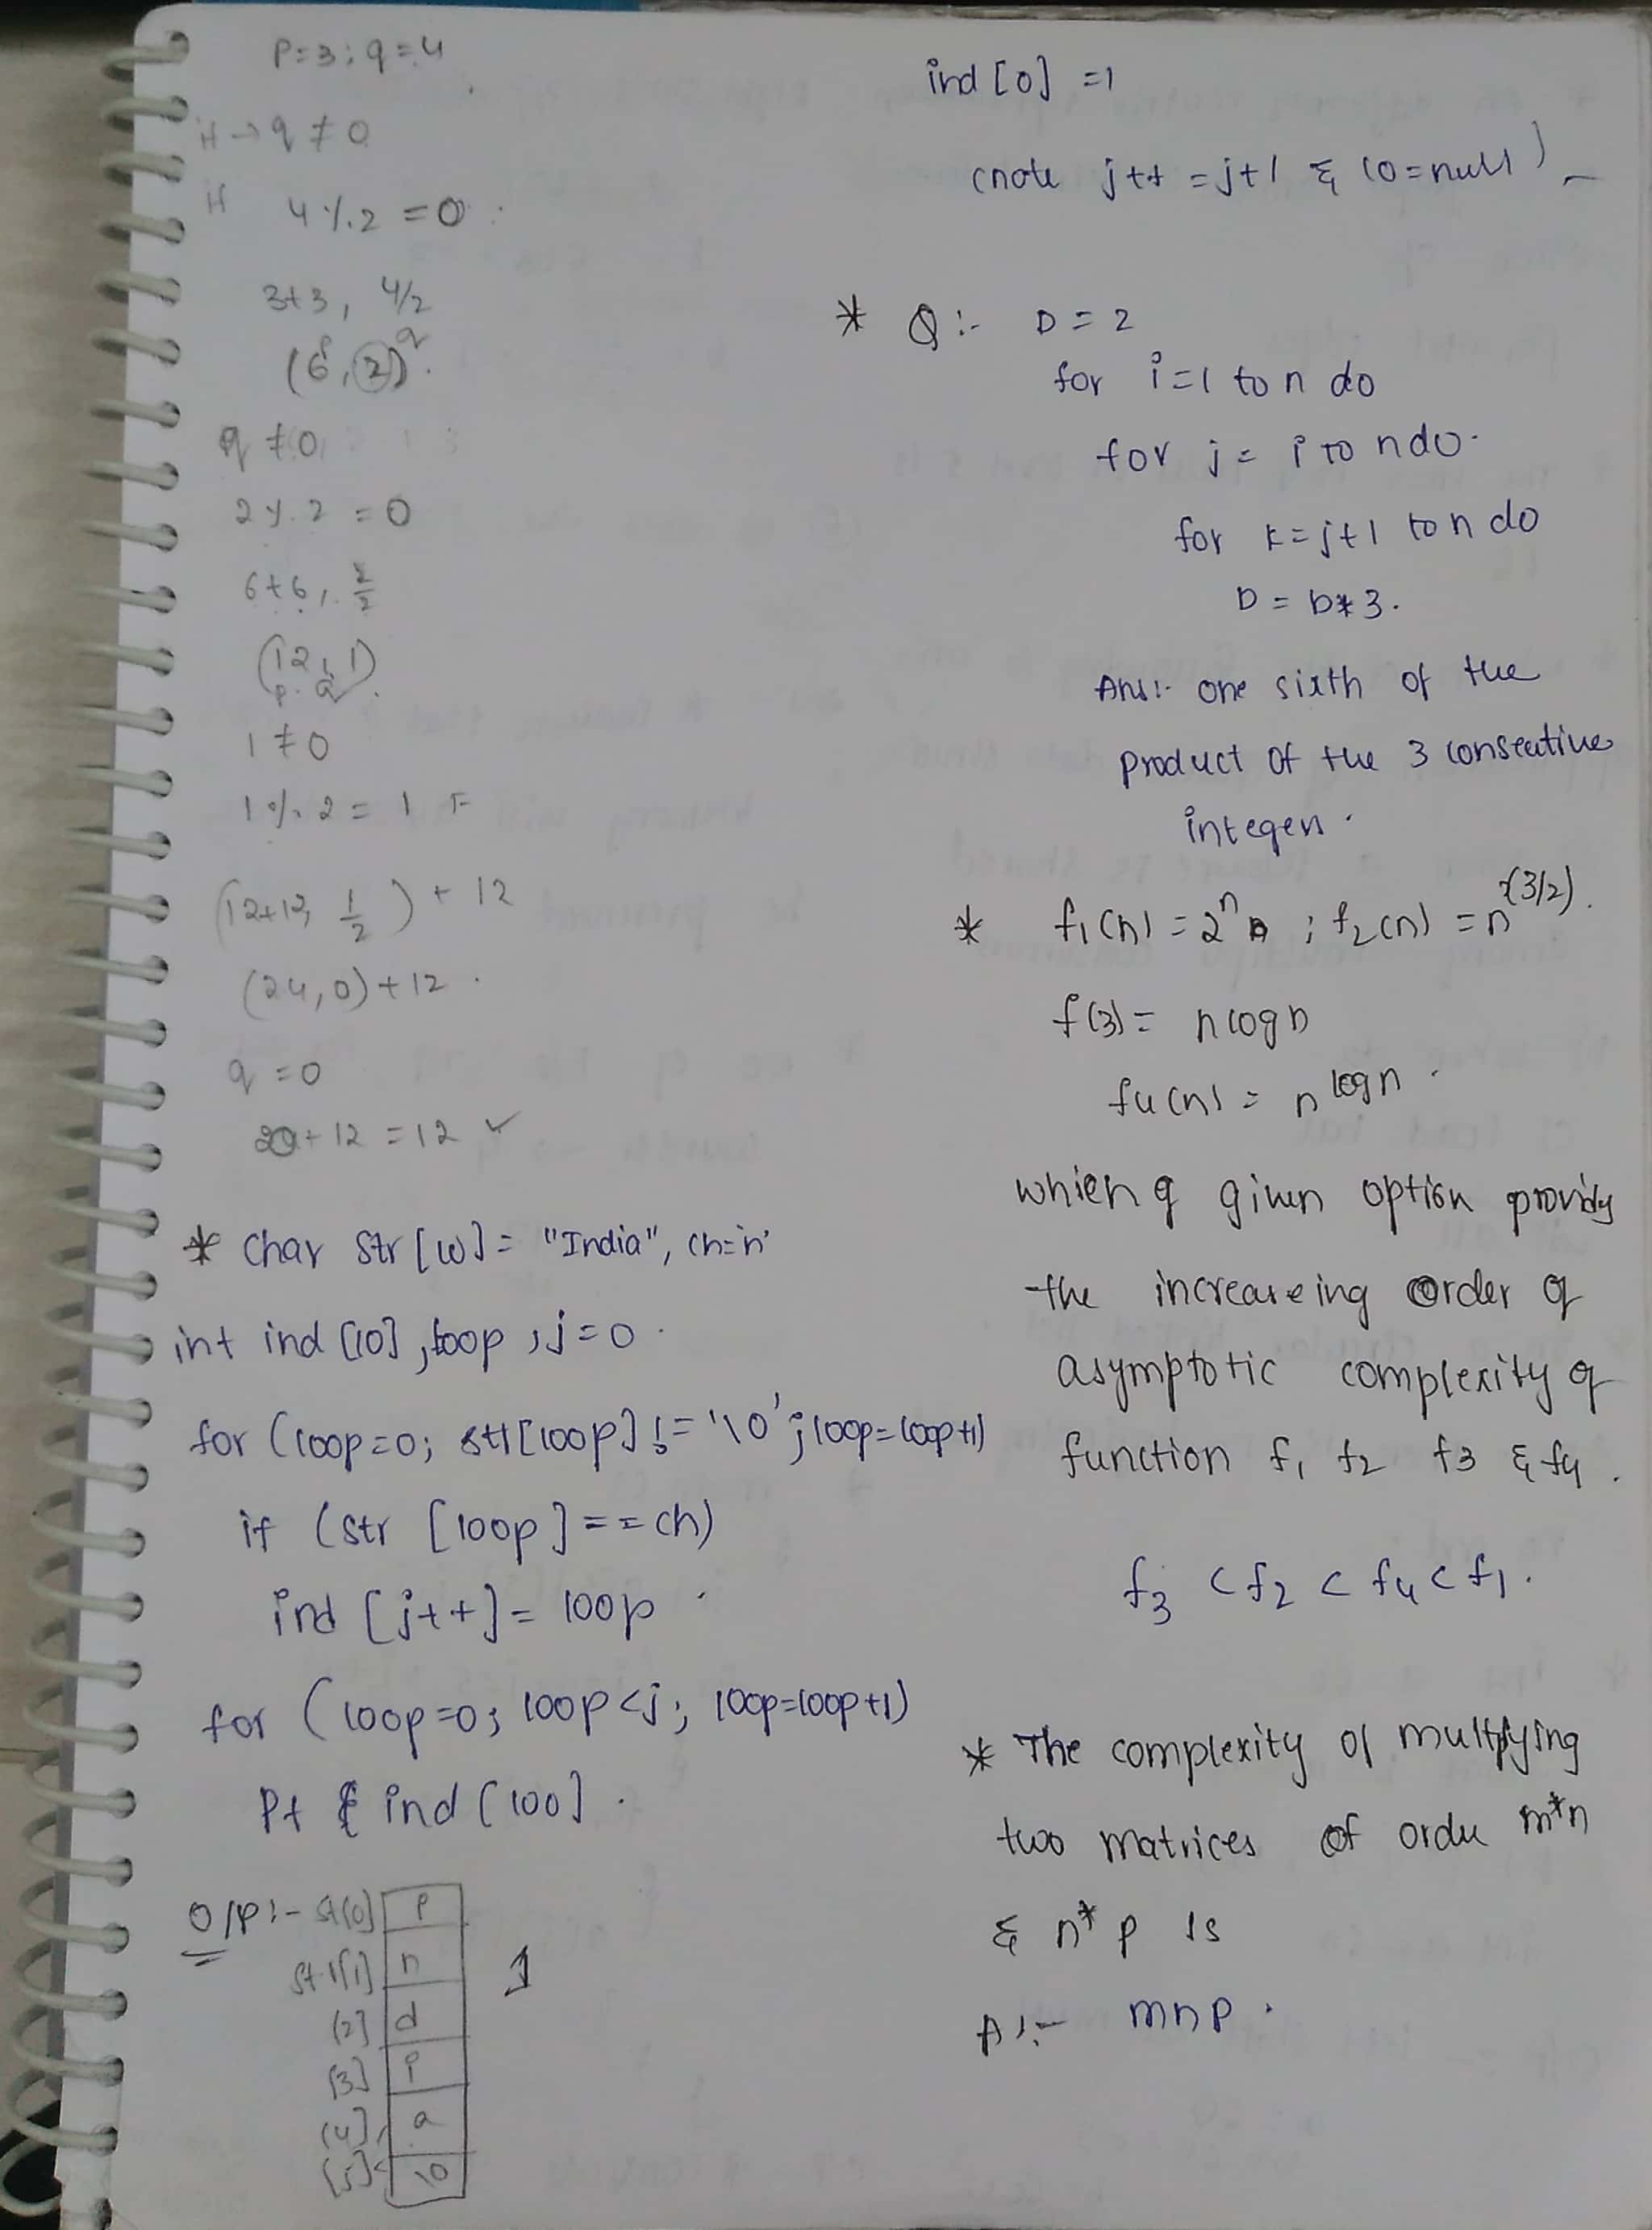 P=3; q=4
if → q ≠ 0
if 4 % 2 = 0
3+3, 4/2
(6, 2) q
q ≠ 0
2 % 2 = 0
6+6, 2/2
(12, 1)
p q
1 ≠ 0
1 % 2 = 1 F
(12+12, 1/2) + 12
(24, 0) + 12
q = 0
+ 12 = 12 ✓
* Char Str [10] = "India", ch='n'
int ind [10], loop, j=0
for (loop=0; str[loop] != '\0'; loop=loop+1)
if (str [loop] == ch)
ind [j++] = loop
for (loop=0; loop<j; loop=loop+1)
Pt ind [loo].
O/P :- St[0] i
str[1] n 1
[2] d
[3] i
[4] a
[5] \0
ind [0] =1
(note j++ = j+1 & \0=null)
* Q :- D = 2
for i=1 to n do
for j = i to n do.
for k=j+1 to n do
D = D*3.
Ans:- one sixth of the
product of the 3 conseutive
integers.
* f1(n) = 2^n ; f2(n) = n^(3/2).
f(3) = n log n
f4(n) = n^log n.
which of given option provids
the increaseing order of
asymptotic complexity of
function f1 f2 f3 & f4.
f3 < f2 < f4 < f1.
* The complexity of multplying
two matrices of order m*n
& n*p is
A :- mnp.